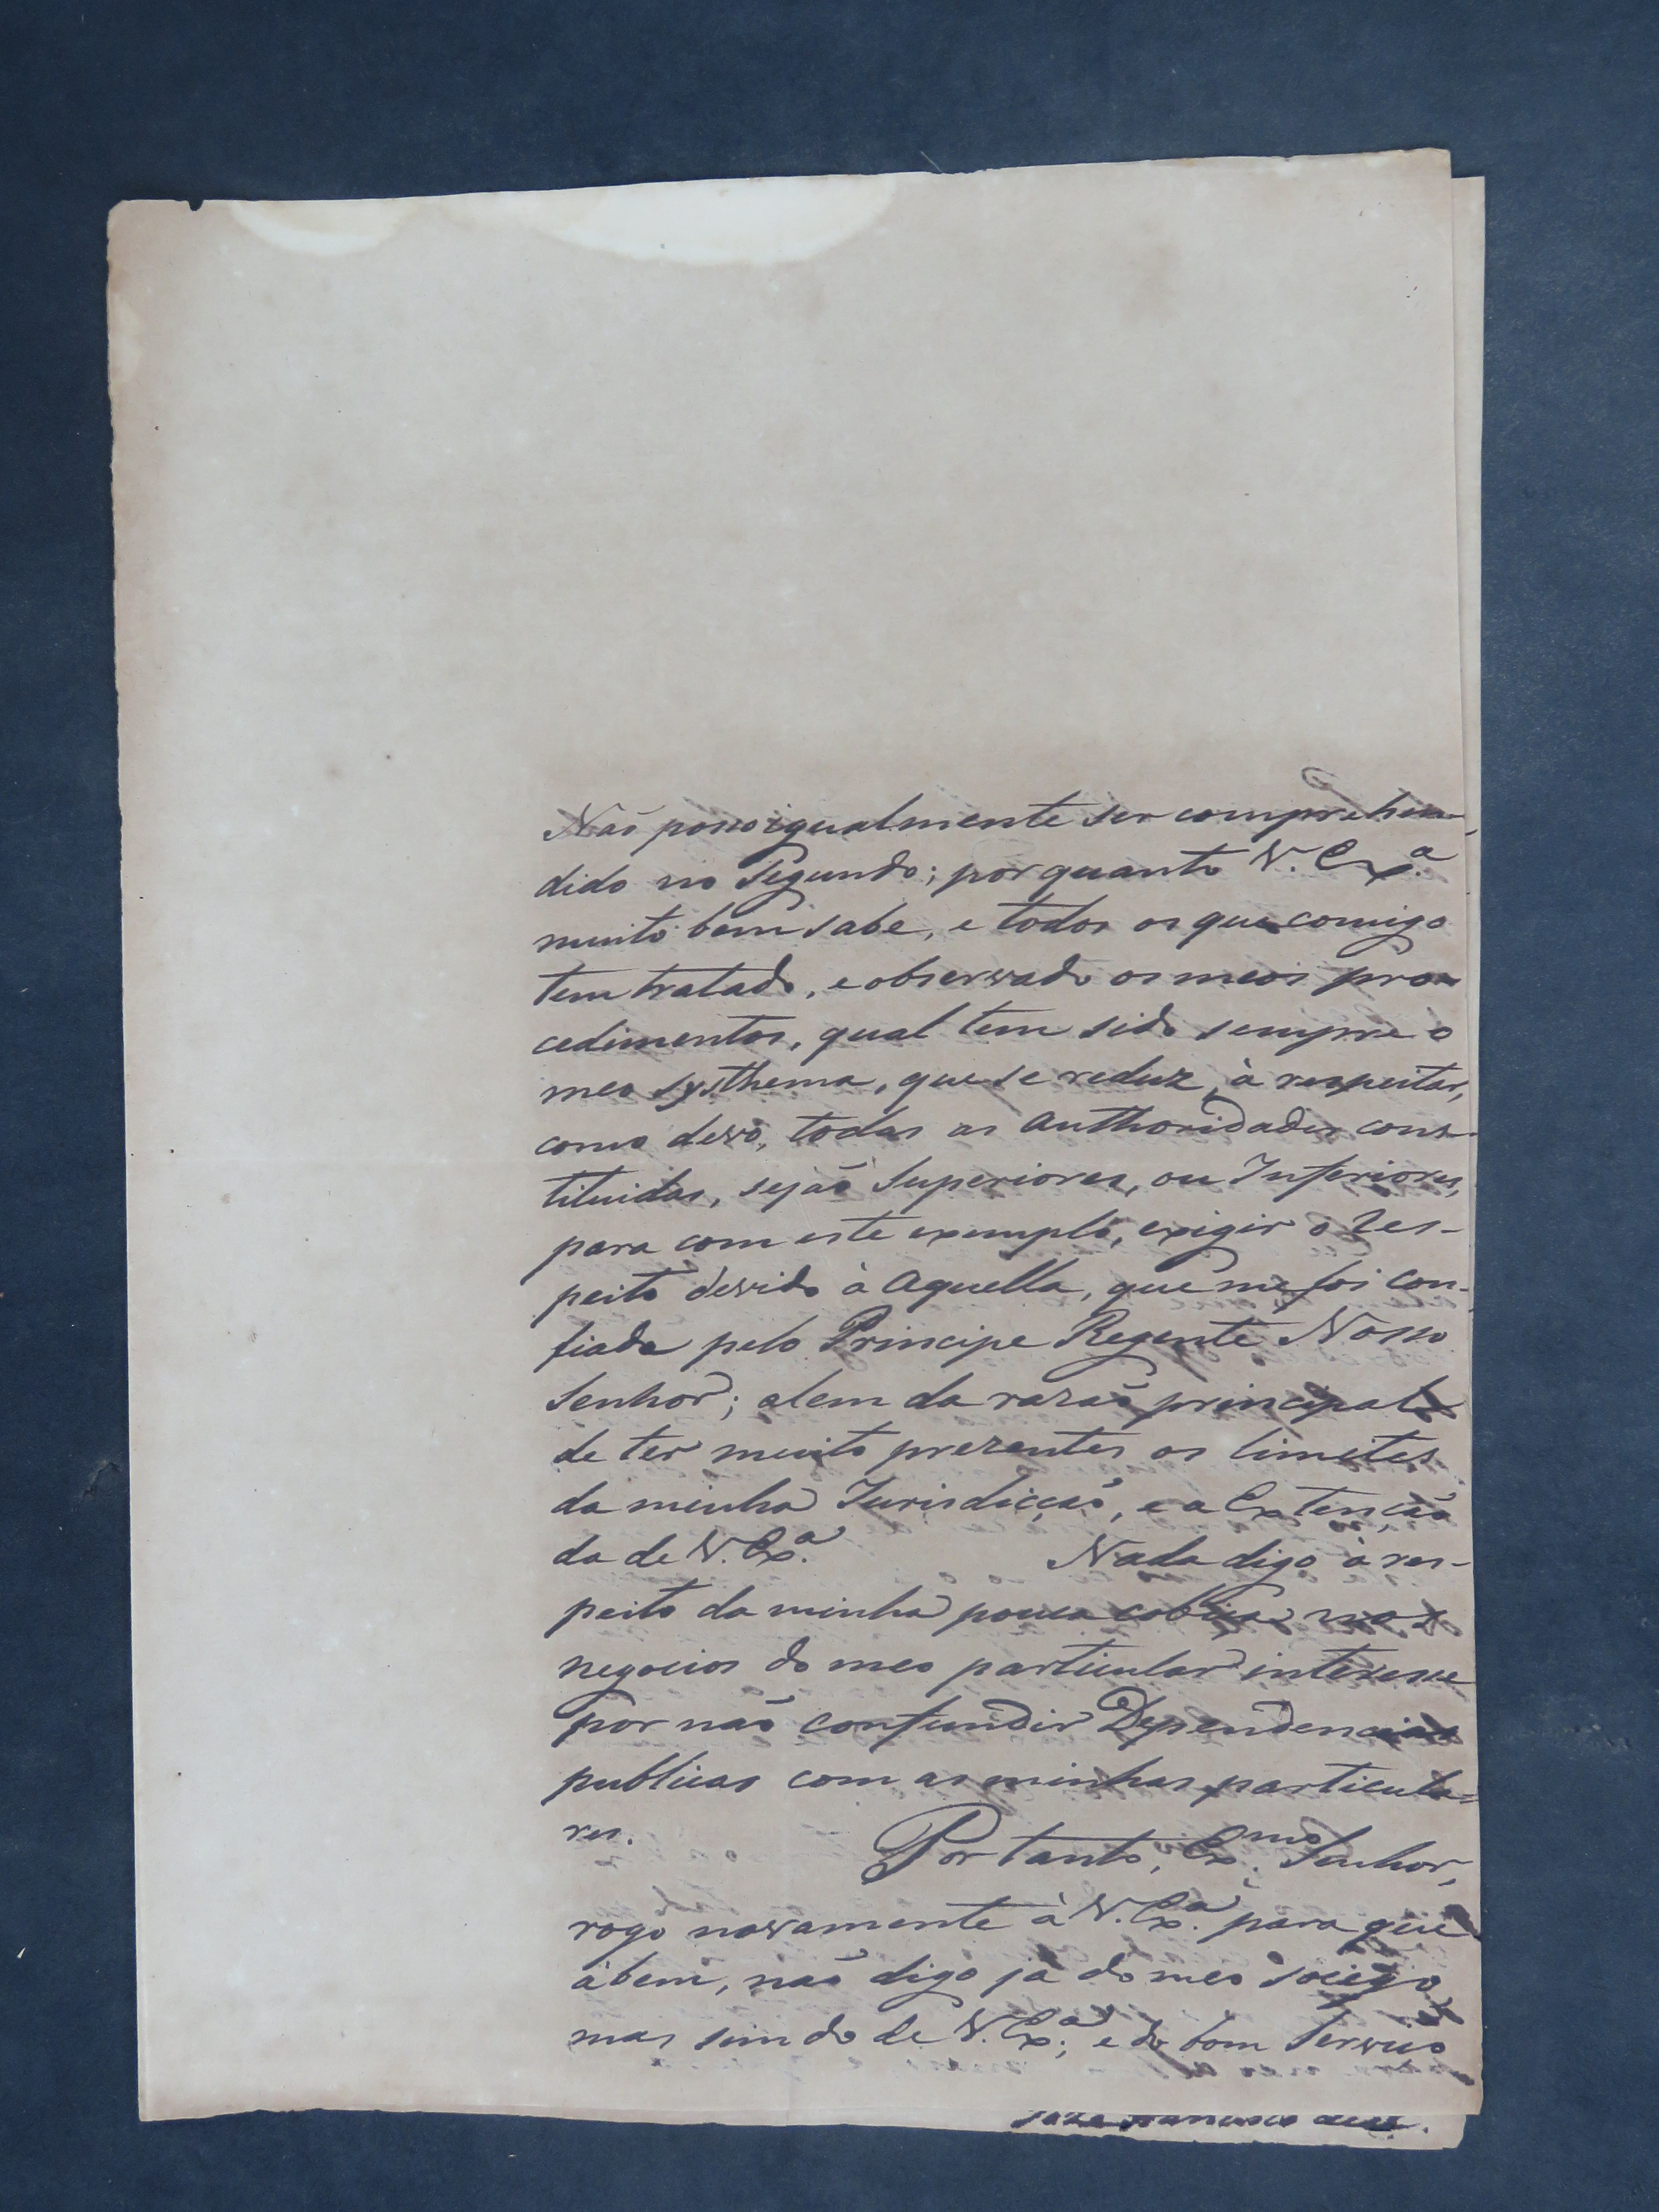 Não posso igualmente ser comprehen-
dido no Segundo; por quanto V. Ex.ª
muito bem sabe, e todos os que comigo
tem tratado, e observado os meos pro-
cedimentos, qual tem sido sempre o
meo systhema, que se reduz, à respeitar,
como devo, todas as Authoridades cons-
tituidas, sejaõ Superiores, ou Inferiores,
para com este exemplo, exigir o res-
peito devido à Aquella, que me foi con-
fiada pelo Principe Regente Nosso
Senhor; alem da razaõ principal
de ter muito prezentes os limites
da minha Jurisdicçaõ, e a Extençaõ
da de V. Ex.ª Nada digo à res-
peito da minha pouca cobiça nos
negocios do meo particular interesse
por naõ confundir Dependencias
publicas com as minhas particula-
res. Por tanto, Ex.mo Senhor,
rogo novamente à V. Ex.ª para que
à bem, naõ digo já do meo socego
mas sim do de V. Ex.ª; e do bom Serviço